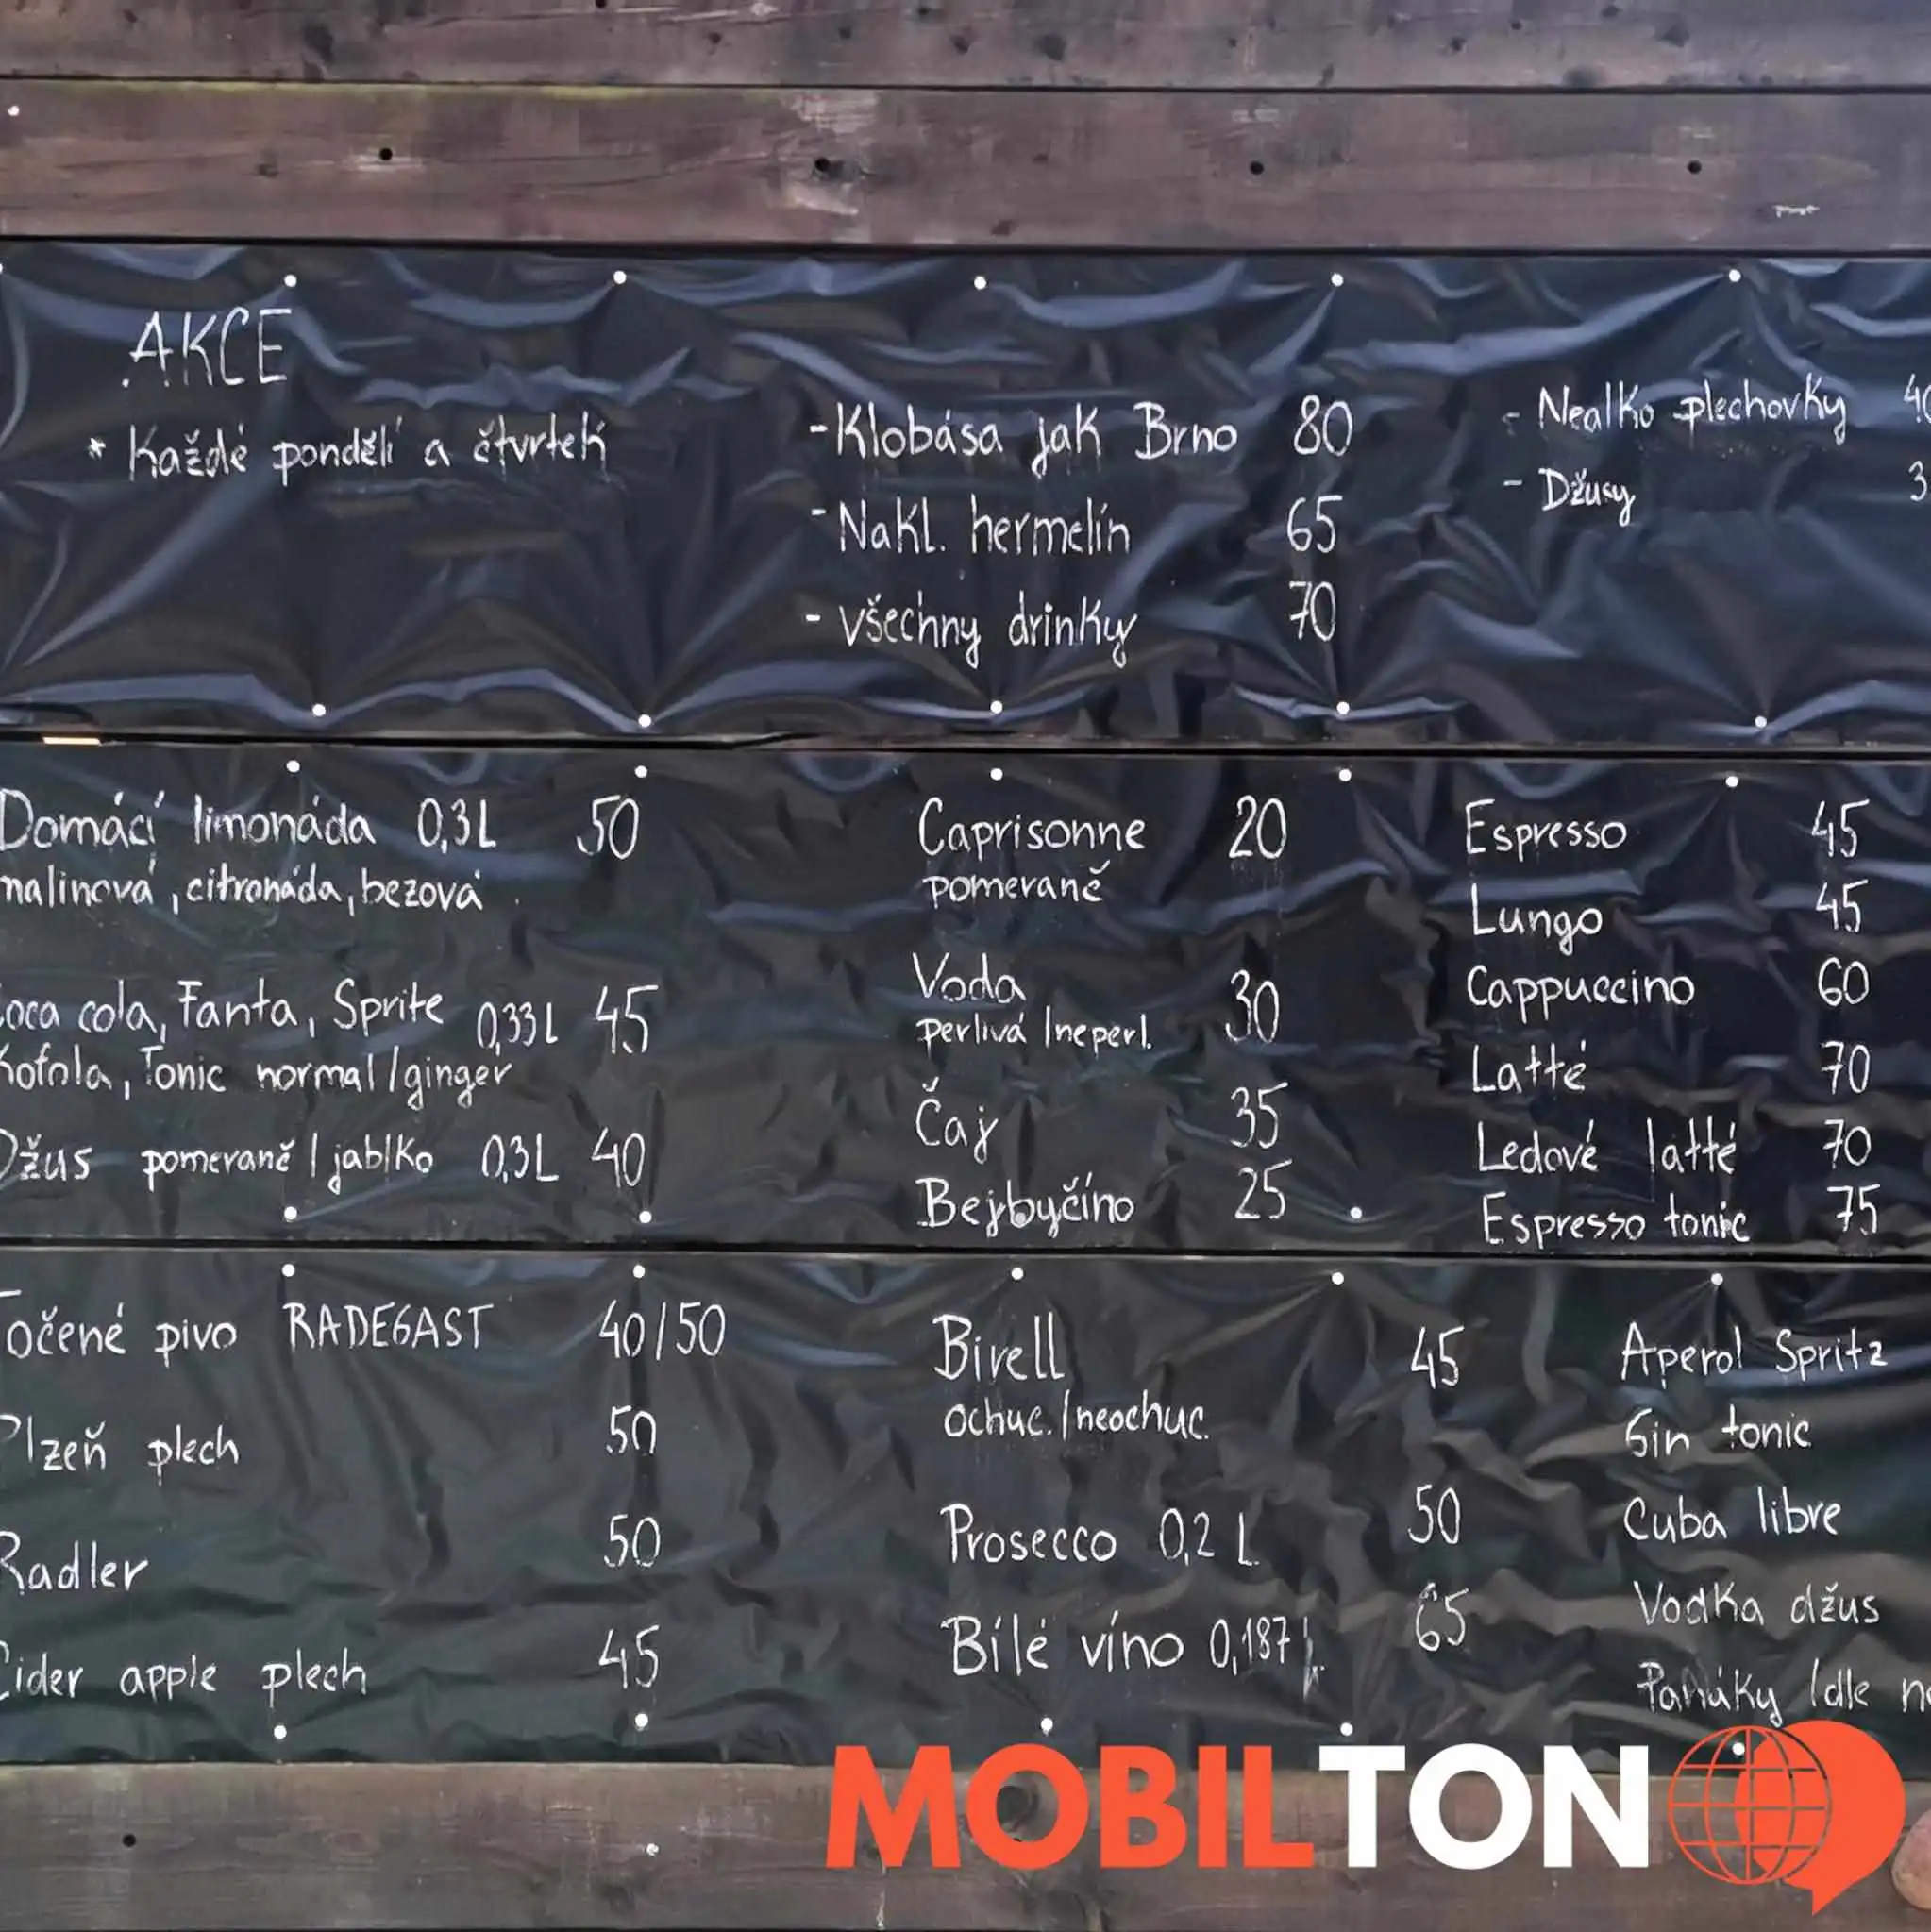 AKCE
* Každé pondělí a čtvrtek
- Klobása jak Brno 80
- Nakl. hermelín 65
- všechny drinky 70
- Nealko plechovky
- Džusy
Domácí limonáda 0,3L 50
malinová, citronáda, bezová
Coca cola, Fanta, Sprite 0,33L 45
Kofola, Tonic normal/ginger
Džus pomeranč / jablko 0,3L 40
Caprisonne 20
pomeranč
Voda 30
perlivá /neperl.
Čaj 35
Bejbyčíno 25
Espresso 45
Lungo 45
Cappuccino 60
Latté 70
Ledové latté 70
Espresso tonic 75
Točené pivo RADEGAST 40/50
Plzeň plech 50
Radler 50
Cider apple plech 45
Birell 45
ochuc./neochuc.
Prosecco 0,2 L 50
Bílé víno 0,187 L 65
Aperol Spritz
Gin tonic
Cuba libre
Vodka džus
Panáky /dle
MOBILTON